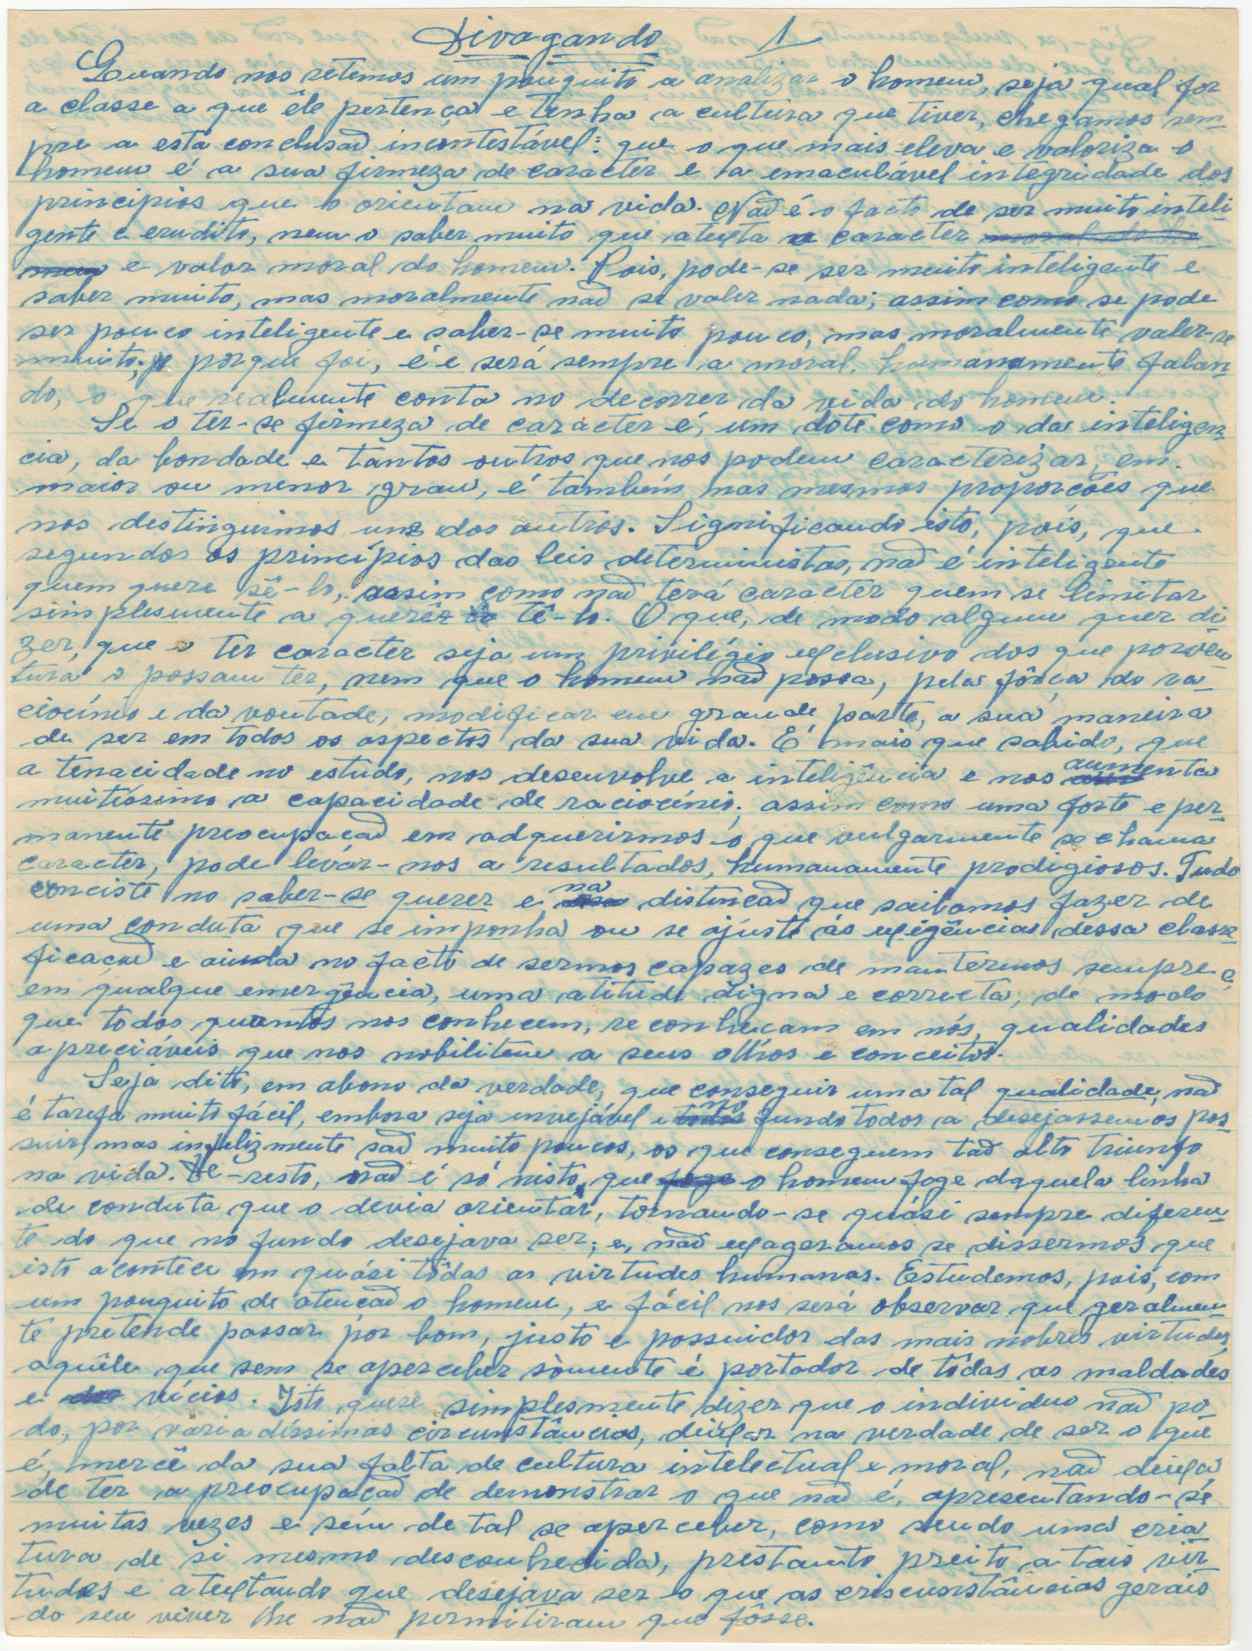 Divagando 1
Quando nos detemos um pouquito a analizar o homem, seja qual for
a classe a que êle pertença e tenha a cultura que tiver, chegamos sem-
pre a esta conclusaõ incontestável: que o que mais eleva e valoriza o
homem é a sua firmeza de caracter e a emaculável integridade dos
principios que o orientam na vida. Naõ é o facto de ser muito inteli-
gente e erudito, nem o saber muito que atexta o caracter
e valor moral do homem. Pois, pode-se ser muito inteligente e
saber muito, mas moralmente naõ se valer nada; assim como se pode
ser pouco inteligente e saber-se muito pouco, mas moralmente valer-se
muito; porque foi, é e será sempre a moral, humanamente falan-
do, o que realmente conta no decorrer da vida do homem.
Se o ter-se firmeza de caracter é, um dote como o da inteligen-
cia, da bondade e tantos outros que nos podem caracterizar, em
maior ou menor grau, é também nas mesmas proporções que
nos destinguimos uns dos outros. Significando isto, pois, que
segundos os princípios das leis deterministas, naõ é inteligente
quem quere sê-lo, assim como naõ terá caractér quem se limitar
simplesmente a querêr tê-lo. O que, de modo algum quer di-
zer, que o ter caracter seja um privilégio exclusivo dos que porven-
tura o possam ter, nem que o homem naõ possa, pela fôrça do ra-
ciocínio e da vontade, modificar em grande parte, a sua maneira
de ser em todos os aspectos da sua vida. É mais que sabido, que
a tenacidade no estudo, nos desenvolve a inteligência e nos aumenta
muitíssimo a capacidade de raciocínio; assim como uma forte e per-
manente preocupaçaõ em adquerirmos o que vulgarmente se chama
caracter, pode levár-nos a resultados, humanamente prodigiosos. Tudo
conciste no saber-se querer e na distinçaõ que saibamos fazer de
uma conduta que se imponha ou se ajuste ás exigências dessa classe-
ficaçaõ e ainda no facto de sermos capazes de mantermos sempre e,
em qualque emergência, uma atitude digna e correcta, de modo
que todos quantos nos conhecem, reconheçam em nós, qualidades
apreciáveis que nos nobilitem a seus olhos e conceitos.
Seja dito, em abono da verdade, que conseguir uma tal qualidade, naõ
é tarefa muito fácil, embora seja invejável e no fundo todos a desejassemos pos-
suir, mas infelizmente saõ muito poucos, os que conseguem taõ alto triunfo
na vida. De-resto, naõ é só nisto, que o homem foge daquela linha
de conduta que o devia orientar, tornando-se quási sempre diferen-
te do que no fundo desejava ser; e, naõ exageramos se dissermos que
isto acontece em quási tôdas as virtudes humanas. Estudemos, pois, com
um pouquito de atençaõ o homem, e fácil nos será observar que geralmen-
te pretende passar por bom, justo e possuidor das mais nobres virtudes,
aquêle que sem se aperceber sòmente é portador de tôdas as maldades
e vicios. Isto, quere simplesmente dizer que o individuo naõ po-
do, por variadíssimas circunstâncias, deixar na verdade de ser o que
é, mercê da sua falta de cultura intelectual e moral, naõ deixa
de ter a preocupaçaõ de demonstrar o que naõ é, apresentando-se
muitas vezes e sem de tal se aperceber, como sendo uma cria-
tura de si mesmo desconhecida, prestanto preito a tais vir-
tudes e atextando que desejava ser o que as criscunstâncias gerais
do seu viver lhe naõ permitiram que fôsse.